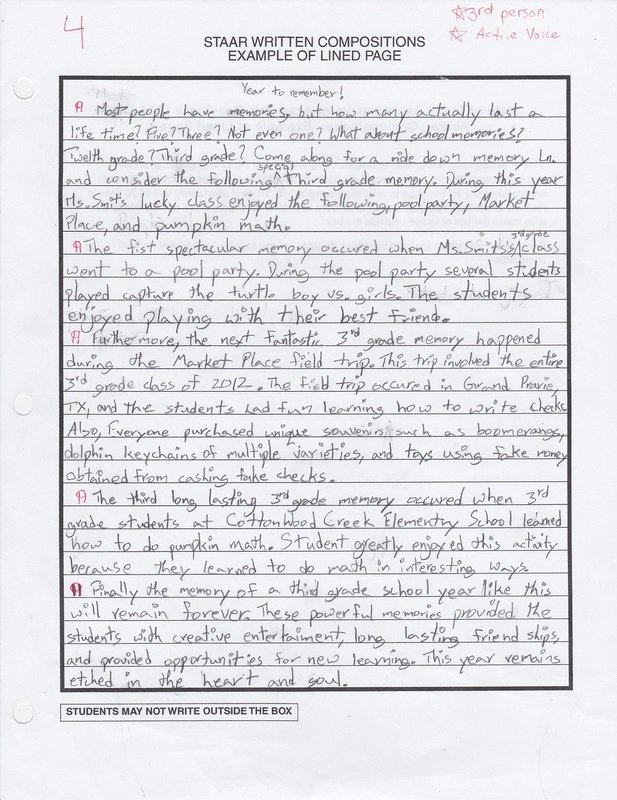 4
☆3rd person
☆ Active Voice
STAAR WRITTEN COMPOSITIONS
EXAMPLE OF LINED PAGE
Year to remember!
A Most people have memories, but how many actually last a
life time? Five? Three? Not even one? What about school memories?
Twelth grade? Third grade? Come along for a ride down memory Ln.
special
and consider the following ^ Third grade memory. During this year
Ms. Smit's lucky class enjoyed the following, pool party, Market
Place, and pumpkin math.
3rd grade
A The fist spectacular memory occured when Ms. Smits's/class
went to a pool party. During the pool party several students
played capture the turtle boy vs. girls. The students
enjoyed playing with their best friend.
A Furthermore, the next fantastic 3rd grade memory happened
during the Market Place field trip. This trip involved the entire
3rd grade class of 2012. The field trip occured in Grand Prarie,
TX, and the students had fun learning how to write checks.
Also, Everyone purchased unique souvenirs such as boomerangs,
dolphin keychains of multiple varieties, and toys using fake money
obtained from cashing fake checks.
A The third long lasting 3rd grade memory occured when 3rd
grade students at Cottonwood Creek Elementry School learned
how to do pumpkin math. Student greatly enjoyed this activity
because they learned to do math in interesting ways
A Finally the memory of a third grade school year like this
will remain forever. These powerful memories provided the
students with creative entertaiment, long lasting friend ships,
and provided opportunities for new learning. This year remains
etched in the heart and soul.
STUDENTS MAY NOT WRITE OUTSIDE THE BOX